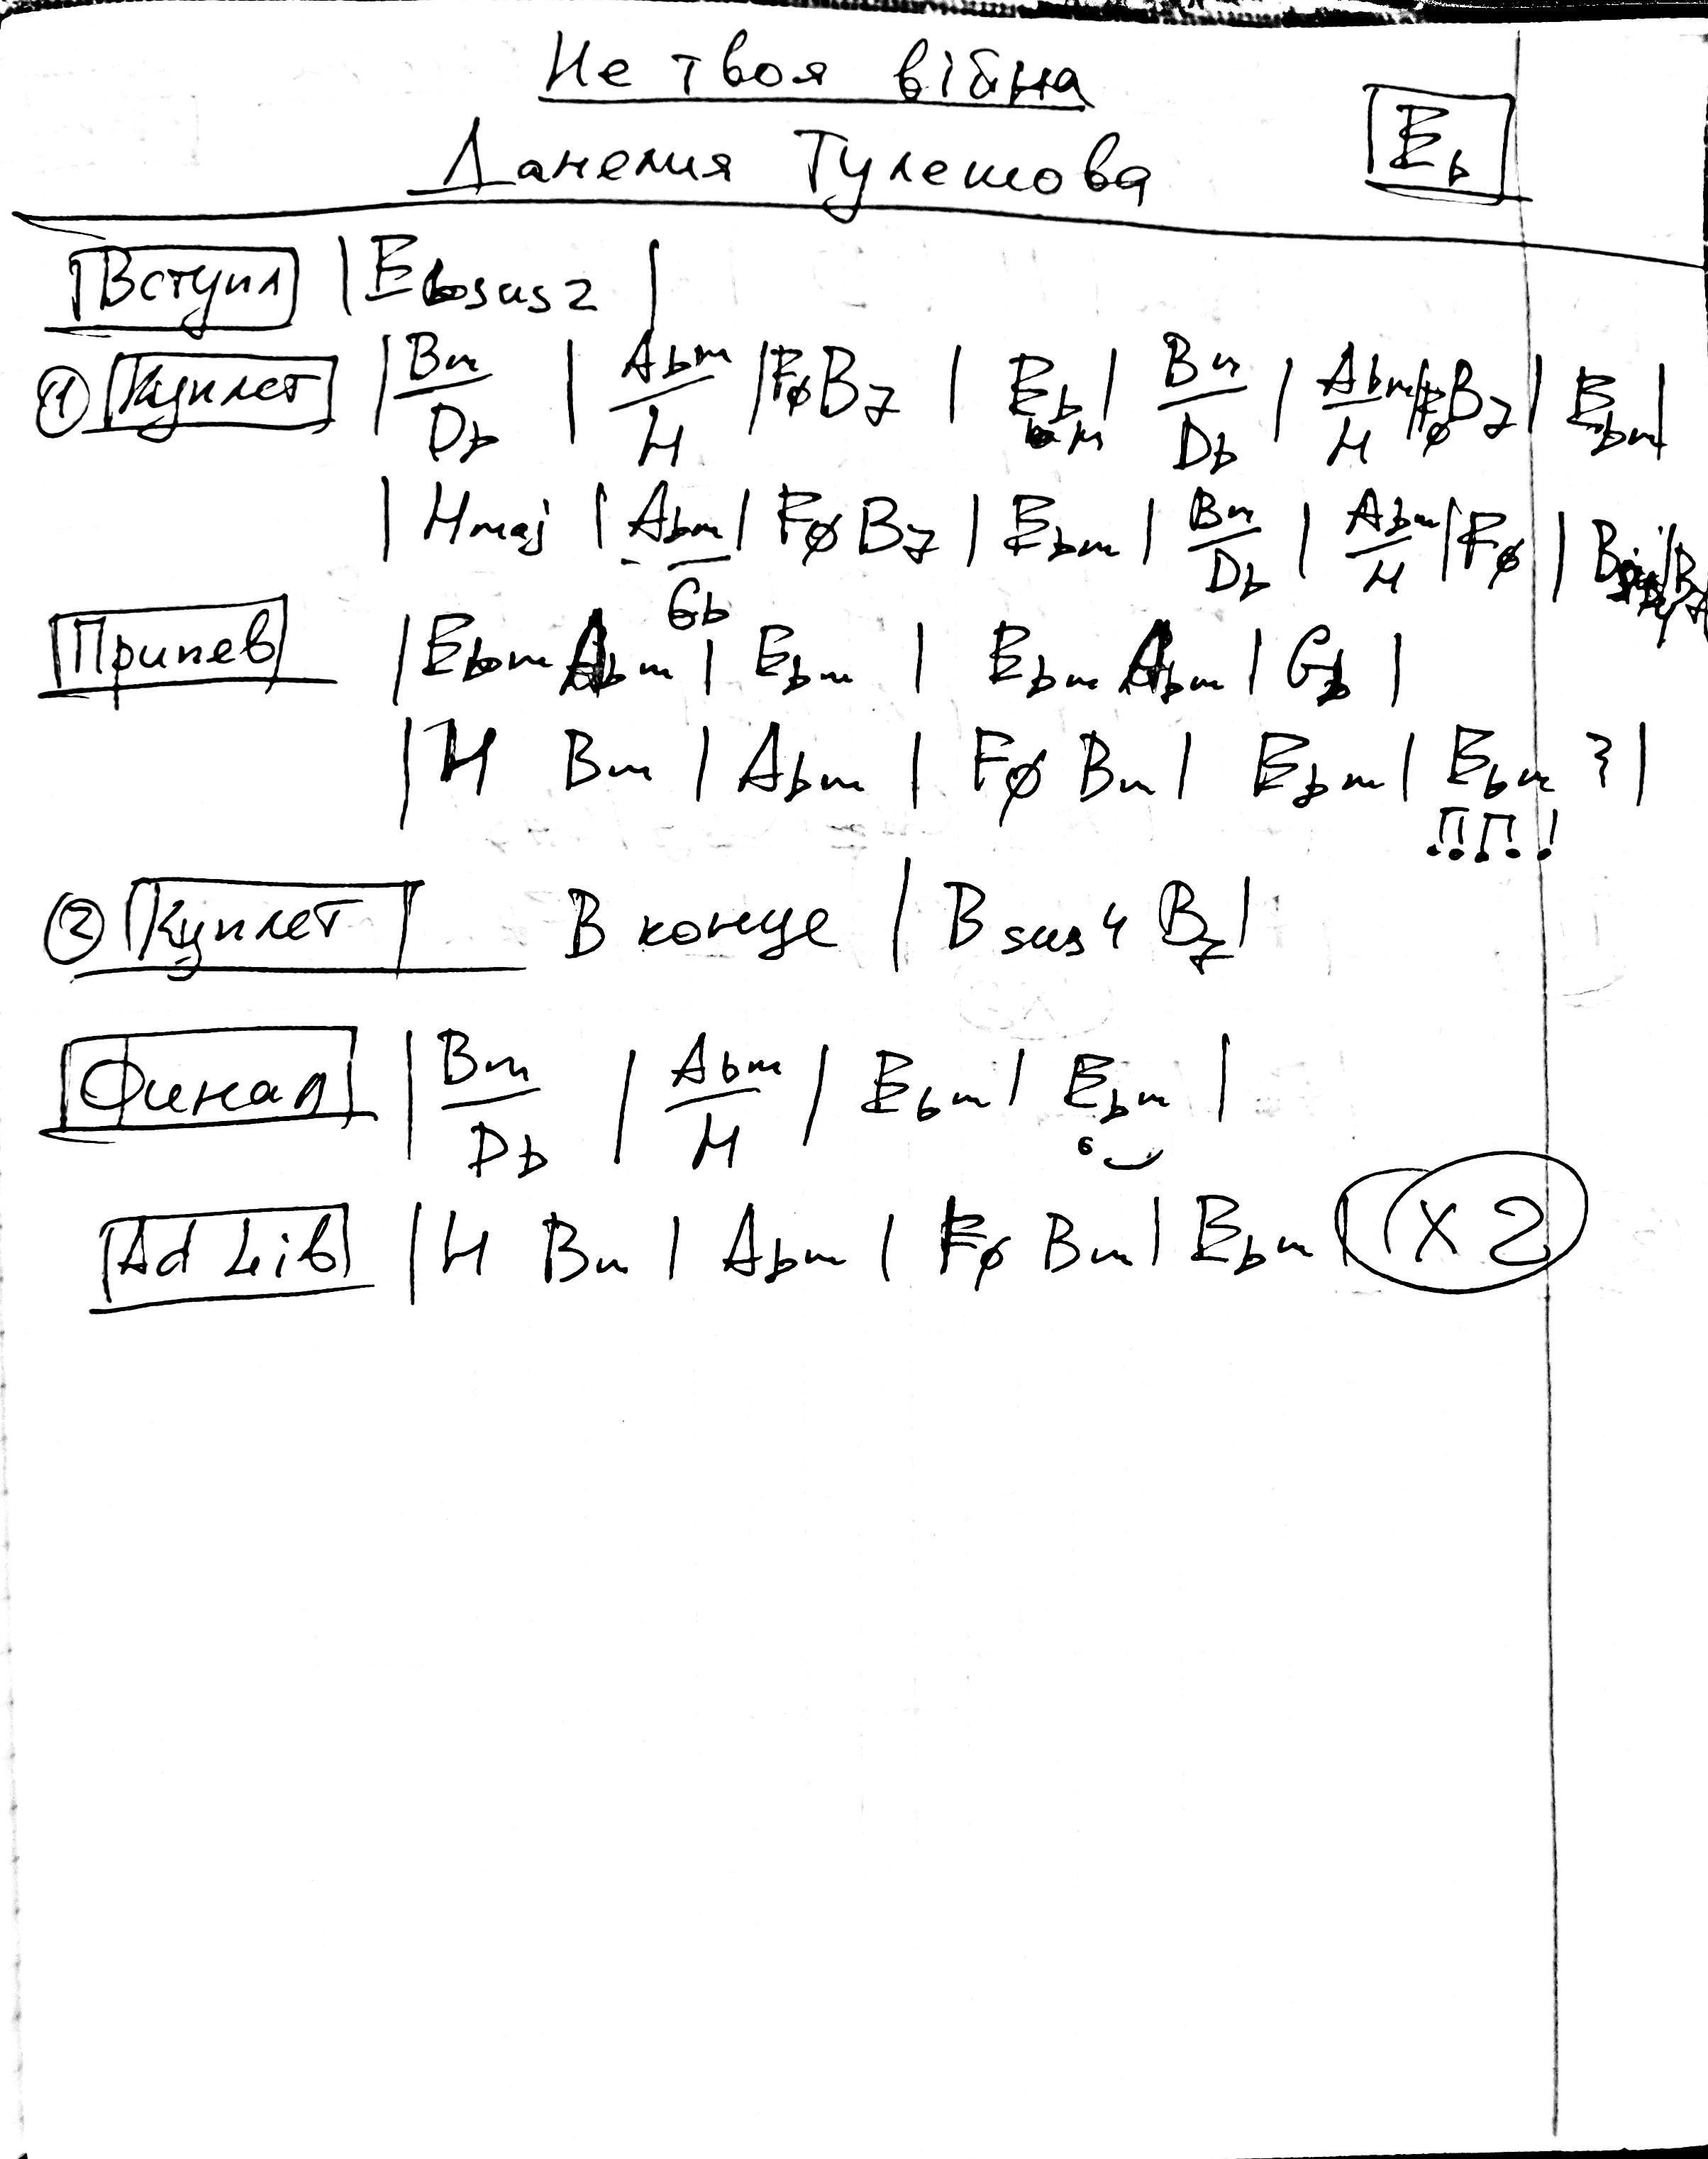 Не твоя війна
Данелия Тулешова
Eb
Вступл | Ebsus2 |
① Куплет | Bm/Db | Abm/H | Fø B7 | Ebm | Bm/Db | Abm/H | Fø B7 | Ebm |
| Hmaj | Abm/Gb | Fø B7 | Ebm | Bm/Db | Abm/H | Fø |
Припев | Ebm Abm | Ebm | Ebm Abm | Gb |
| H Bm | Abm | Fø Bm | Ebm | Ebm |
② Куплет В конце | Bsus4 B7 |
Финал | Bm/Db | Abm/H | Ebm | Ebm |
Ad Lib | H Bm | Abm | Fø Bm | Ebm | x 2